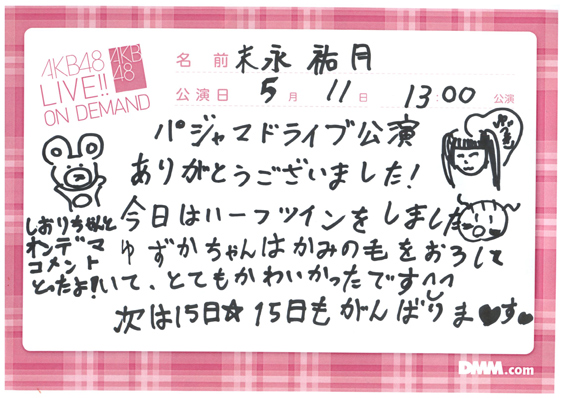 AKB48
LIVE!!
ON DEMAND
AKB
48
名 前 末永 祐月
公演日 5 月 11 日 13:00 公演
パジャマドライブ公演
ありがとうございました!
今日はハーフツインをしました
ゆずかちゃんはかみの毛をおろして
いて、とてもかわいかったです^^
次は15日☆15日もがんばりま♥す♥
しおりちゃんと
オンデマ
コメント
とったよ!
DMM.com